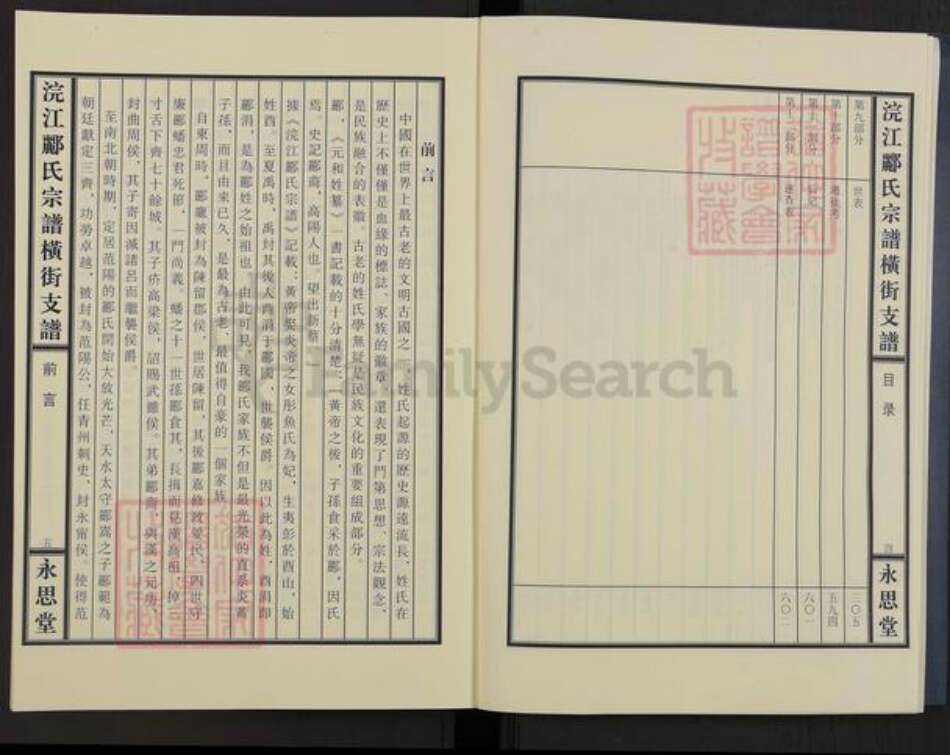 浣江酈氏宗譜橫街支譜
目录
四
永思堂
第九部分 世表 三〇五
第十部分 五九四
第十一部分 六〇一
第十二部分 六〇二
前言
中國在世界上最古老的文明古國之一，姓氏起源的歷史源遠流長，姓氏在
歷史上不僅僅是血緣的標誌、家族的徽章，還表現了門第思想、宗法觀念，
是民族融合的表徵。古老的姓氏學無疑是民族文化的重要組成部分。
酈，《元和姓纂》一書記載的十分清楚：「黃帝之後，子孫食采於酈，因氏
焉。史記酈商，高陽人也。望出新蔡
據《浣江酈氏宗譜》記載：黃帝娶炎帝之女彤魚氏為妃，生夷彭於酉山，始
姓酉。至夏禹時，禹封其後人酉涓于酈國，世襲侯爵。因以此為姓，酉涓即
酈涓，是為酈姓之始祖也。由此可見，我酈氏家族不但是最光榮的直系炎黃
子孫，而且由來已久，是最為古老、最值得自豪的一個家族。
自東周時，酈龐被封為陳留郡侯，世居陳留，其後酈嘉修政愛民，四世守
廉酈蟠忠君死節，一門尚義。蟠之十一世孫酈食其，長揖而見漢高祖，掉
寸舌下齊七十餘城。其子疥高梁侯，詔賜武雖侯。其弟酈商，與漢之元功，
封曲周侯，其子寄因減諸呂而繼襲侯爵。
至南北朝時期，定居范陽的酈氏開始大放光芒，天水太守酈嵩之子酈範為
朝廷獻定三齊，功勞卓越，被封為范陽公，任青州刺史，封永甯侯。使得范
浣江酈氏宗譜橫街支譜
前言
五
永思堂
FamilySearch